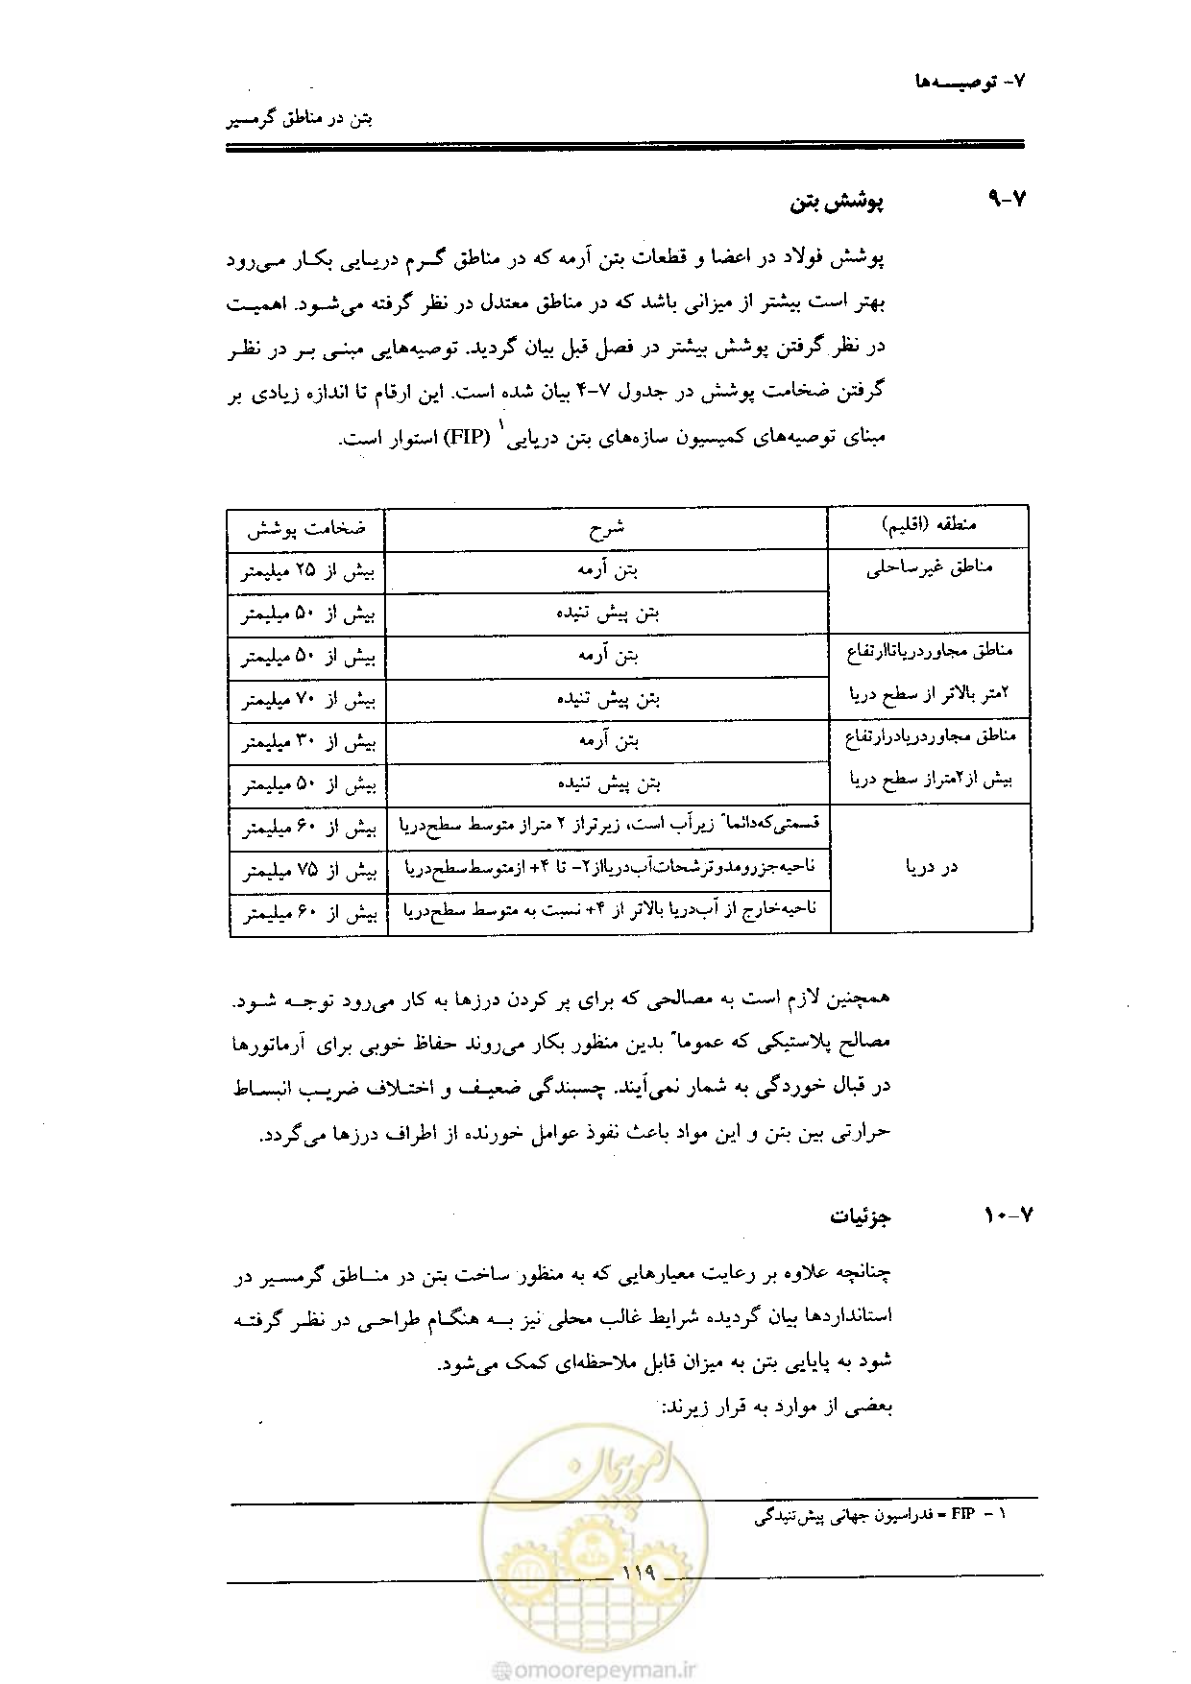 ۷- توصیـــه‌ها
بتن در مناطق گرمسیر
۷-۹ پوشش بتن
پوشش فولاد در اعضا و قطعات بتن آرمه که در مناطق گـرم دریـایی بکـار مـی‌رود
بهتر است بیشتر از میزانی باشد که در مناطق معتدل در نظر گرفته می‌شـود. اهمیـت
در نظر گرفتن پوشش بیشتر در فصل قبل بیان گردید. توصیه‌هایی مبنـی بـر در نظـر
گرفتن ضخامت پوشش در جدول ۷-۴ بیان شده است. این ارقام تا اندازه زیادی بر
مبنای توصیه‌های کمیسیون سازه‌های بتن دریایی۱ (FIP) استوار است.
منطقه (اقلیم) شرح ضخامت پوشش
مناطق غیرساحلی بتن آرمه بیش از ۲۵ میلیمتر
بتن پیش تنیده بیش از ۵۰ میلیمتر
مناطق مجاوردریاتاارتفاع بتن آرمه بیش از ۵۰ میلیمتر
۲متر بالاتر از سطح دریا بتن پیش تنیده بیش از ۷۰ میلیمتر
مناطق مجاوردریادرارتفاع بتن آرمه بیش از ۳۰ میلیمتر
بیش از۲متراز سطح دریا بتن پیش تنیده بیش از ۵۰ میلیمتر
قسمتی‌که‌دائماً زیرآب است، زیرتراز ۲ متراز متوسط سطح‌دریا بیش از ۶۰ میلیمتر
در دریا ناحیه‌جزرومدوترشحات‌آب‌دریااز۲- تا ۴+ ازمتوسط‌سطح‌دریا بیش از ۷۵ میلیمتر
ناحیه‌خارج از آب‌دریا بالاتر از ۴+ نسبت به متوسط سطح‌دریا بیش از ۶۰ میلیمتر
همچنین لازم است به مصالحی که برای پر کردن درزها به کار می‌رود توجـه شـود.
مصالح پلاستیکی که عموماً بدین منظور بکار می‌روند حفاظ خوبی برای آرماتورها
در قبال خوردگی به شمار نمی‌آیند. چسبندگی ضعیـف و اختـلاف ضریـب انبسـاط
حرارتی بین بتن و این مواد باعث نفوذ عوامل خورنده از اطراف درزها می‌گردد.
۷-۱۰ جزئیات
چنانچه علاوه بر رعایت معیارهایی که به منظور ساخت بتن در منـاطق گرمسـیر در
استانداردها بیان گردیده شرایط غالب محلی نیز بـه هنگـام طراحـی در نظـر گرفتـه
شود به پایایی بتن به میزان قابل ملاحظه‌ای کمک می‌شود.
بعضی از موارد به قرار زیرند:
۱ - FIP = فدراسیون جهانی پیش‌تنیدگی
۱۱۹
امور پیمان
@omoorepeyman.ir